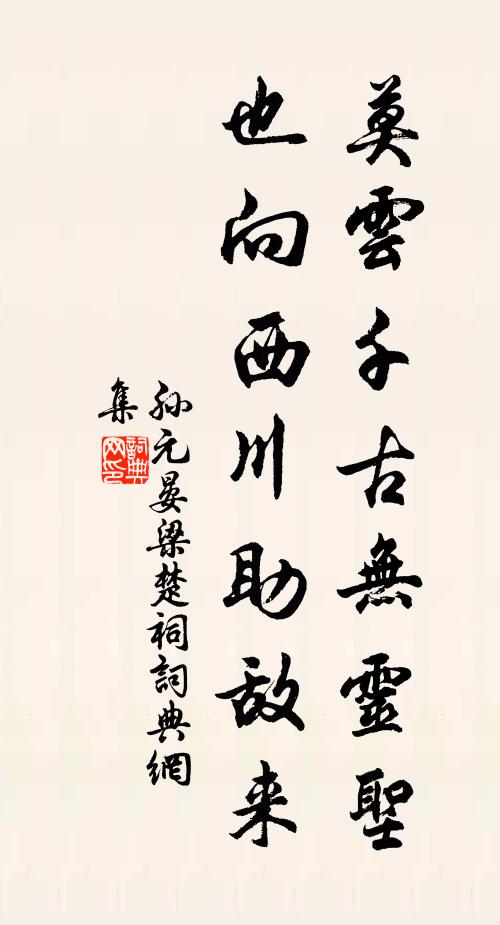 莫雲千古無靈聖
也向西川助敌来
孙元晏梁楚祠詞典網
集
詞典網印